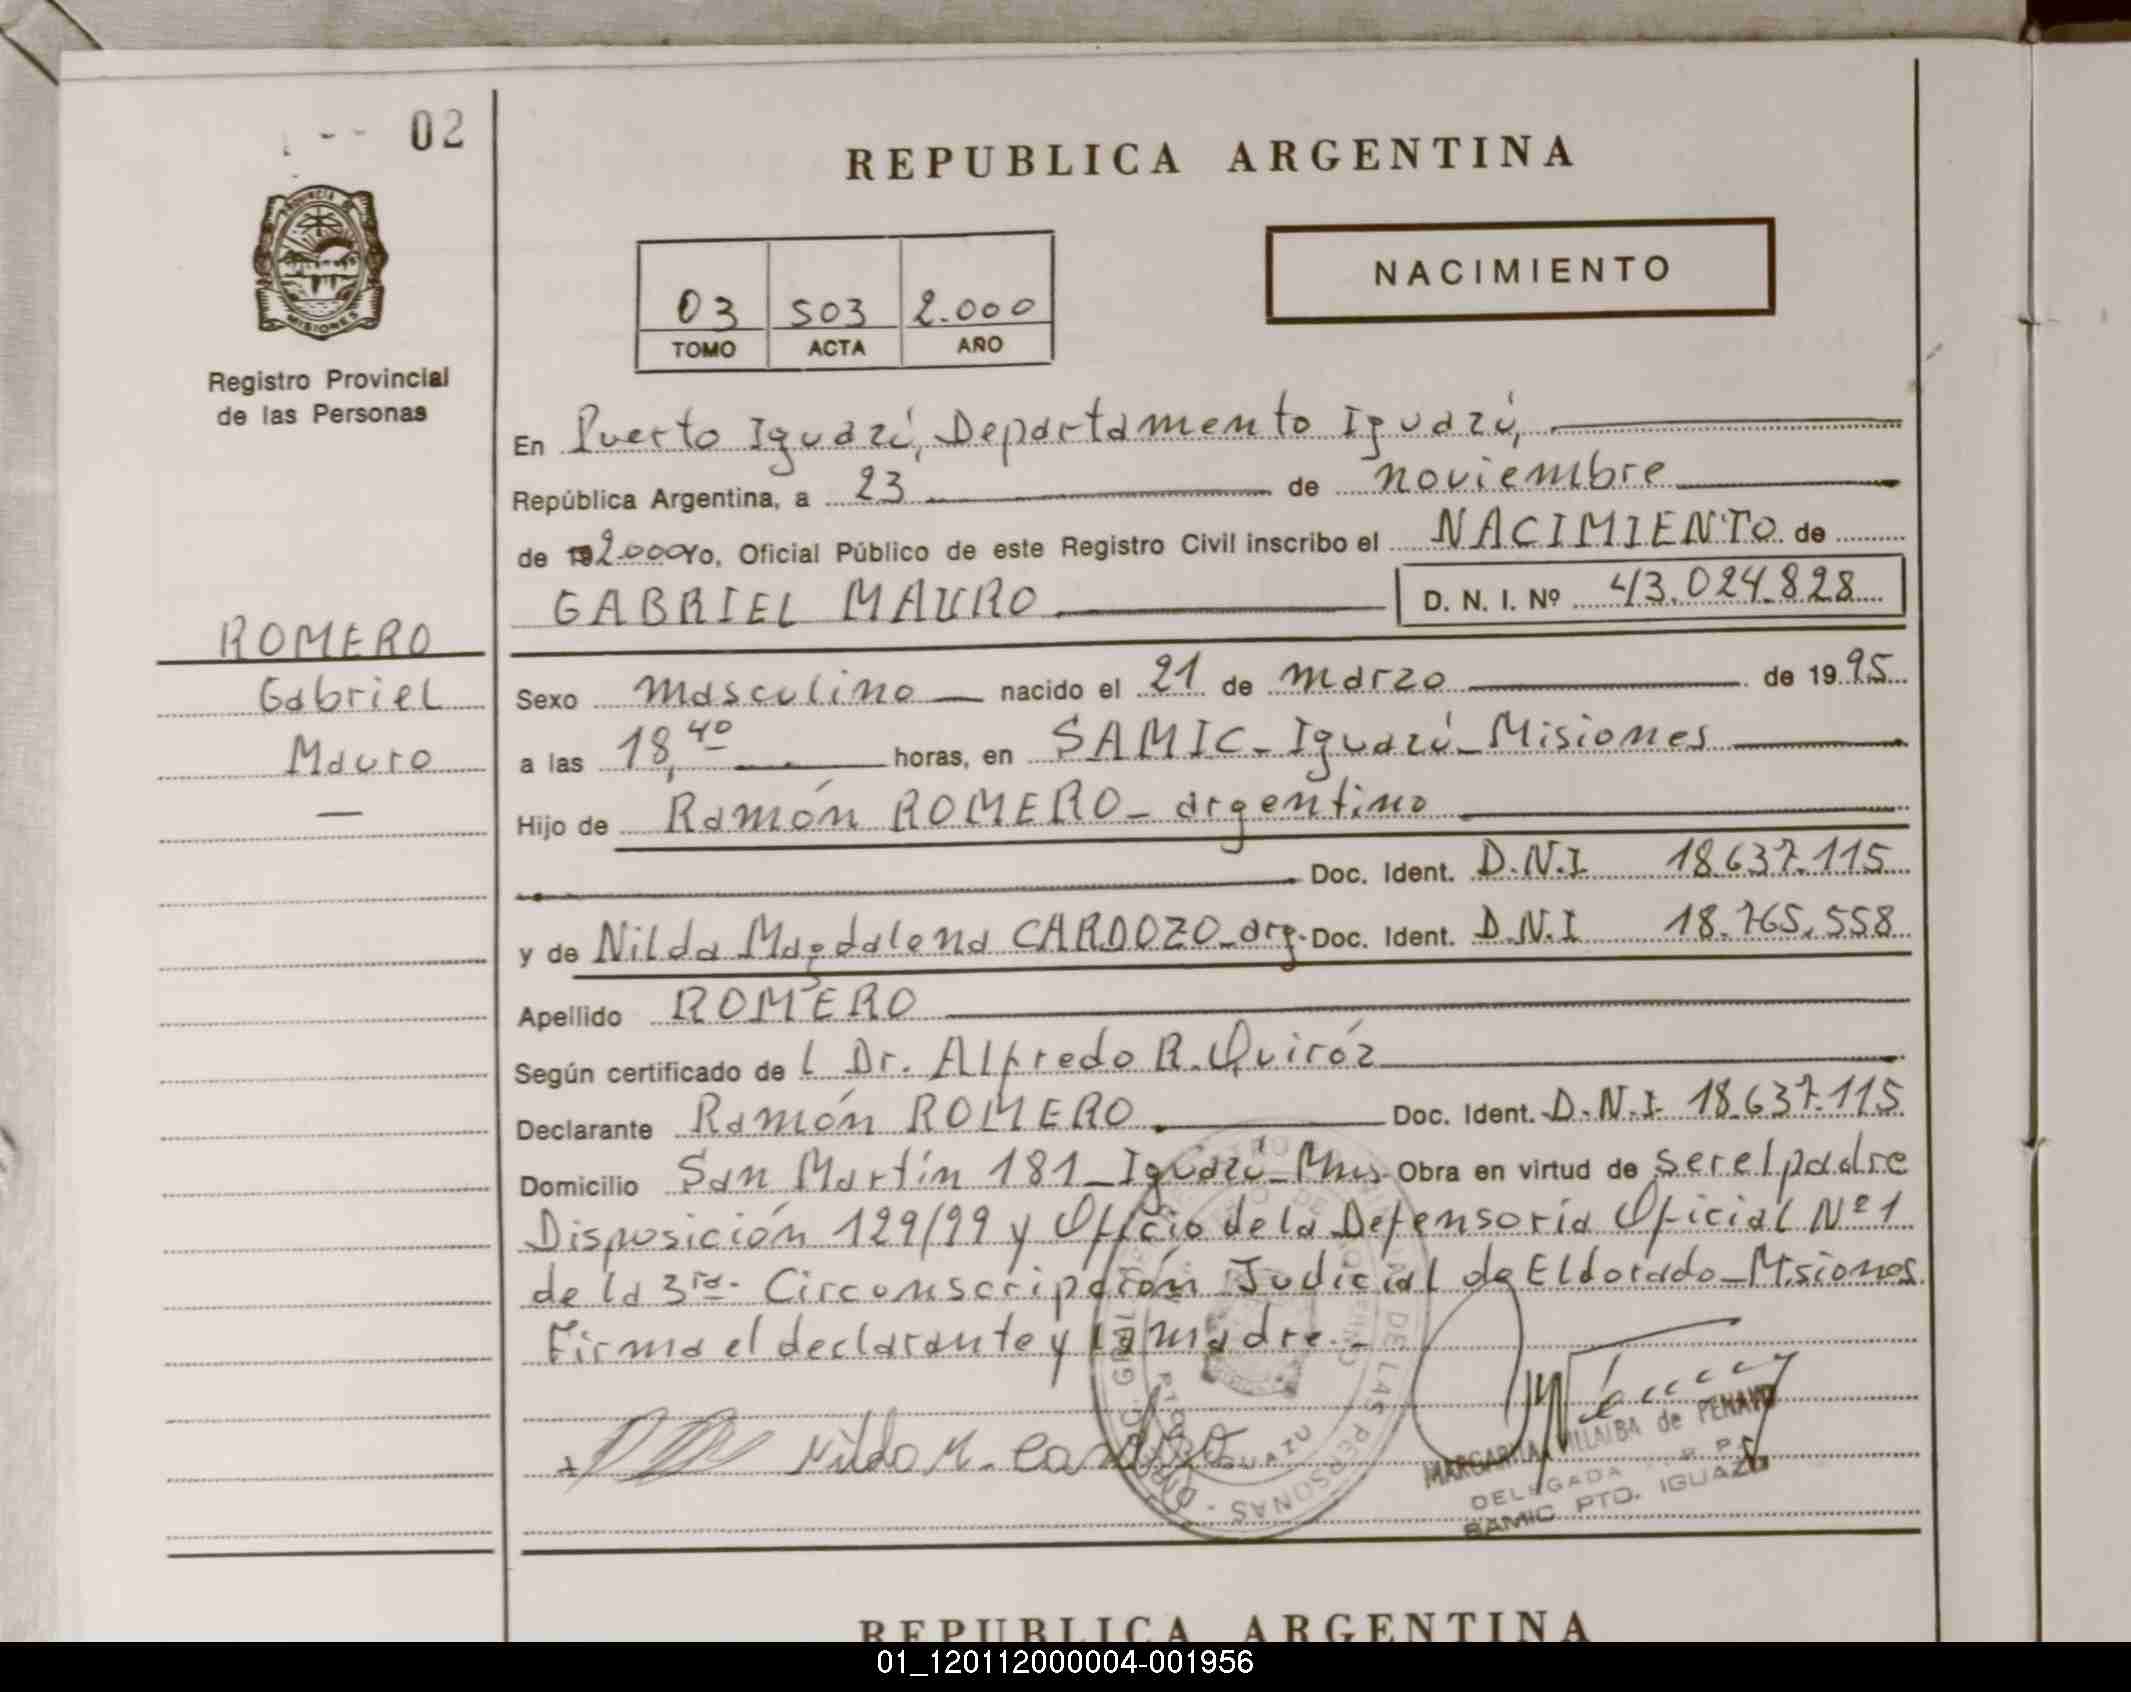 02
REPUBLICA ARGENTINA
PROVINCIA DE
MISIONES
Registro Provincial
de las Personas
03 503 2.000
TOMO ACTA AÑO
NACIMIENTO
En Puerto Iguazú, Departamento Iguazú,
República Argentina, a 23 de noviembre
de 2.000 Yo, Oficial Público de este Registro Civil inscribo el NACIMIENTO de
GABRIEL MAURO D. N. I. Nº 43.024.828
ROMERO
Gabriel
Mauro
Sexo masculino nacido el 21 de marzo de 1995
a las 18,40 horas, en SAMIC - Iguazú - Misiones
Hijo de Ramón ROMERO - argentino
Doc. Ident. D.N.I 18.637.115
y de Nilda Magdalena CARDOZO - arg. Doc. Ident. D.N.I 18.765.558
Apellido ROMERO
Según certificado de l Dr. Alfredo R. Quiróz
Declarante Ramón ROMERO Doc. Ident. D.N.I. 18.637.115
Domicilio San Martín 181 - Iguazú - Mnes. Obra en virtud de ser el padre
Disposición 129/99 y Oficio de la Defensoría Oficial Nº 1
de la 3ra. Circunscripción Judicial de Eldorado - Misiones
Firma el declarante y la madre. -
Nilda M. Cardozo
MARGARITA VILLALBA de PENAYO
DELEGADA R. P. P.
SAMIC PTO. IGUAZU
DE LAS PERSONAS
REPUBLICA ARGENTINA
01_120112000004-001956